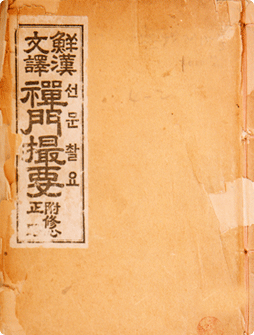 鮮漢
文譯
禪門撮要
선문촬요
附修心
正